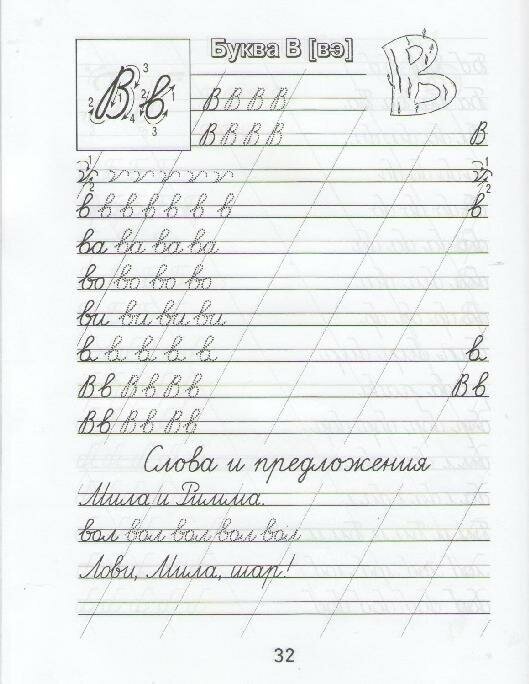 Буква В [вэ]
В в 3 2 1 4 2 1 3
В В В В
В В В В В
1 2 1 2
в в в в в в в в
ва ва ва ва
во во во во
ви ви ви ви
в в в в в
Вв Вв Вв Вв
Вв Вв Вв
Слова и предложения
Мила и Римма.
вол вол вол вол вол
Лови, Мила, шар!
32